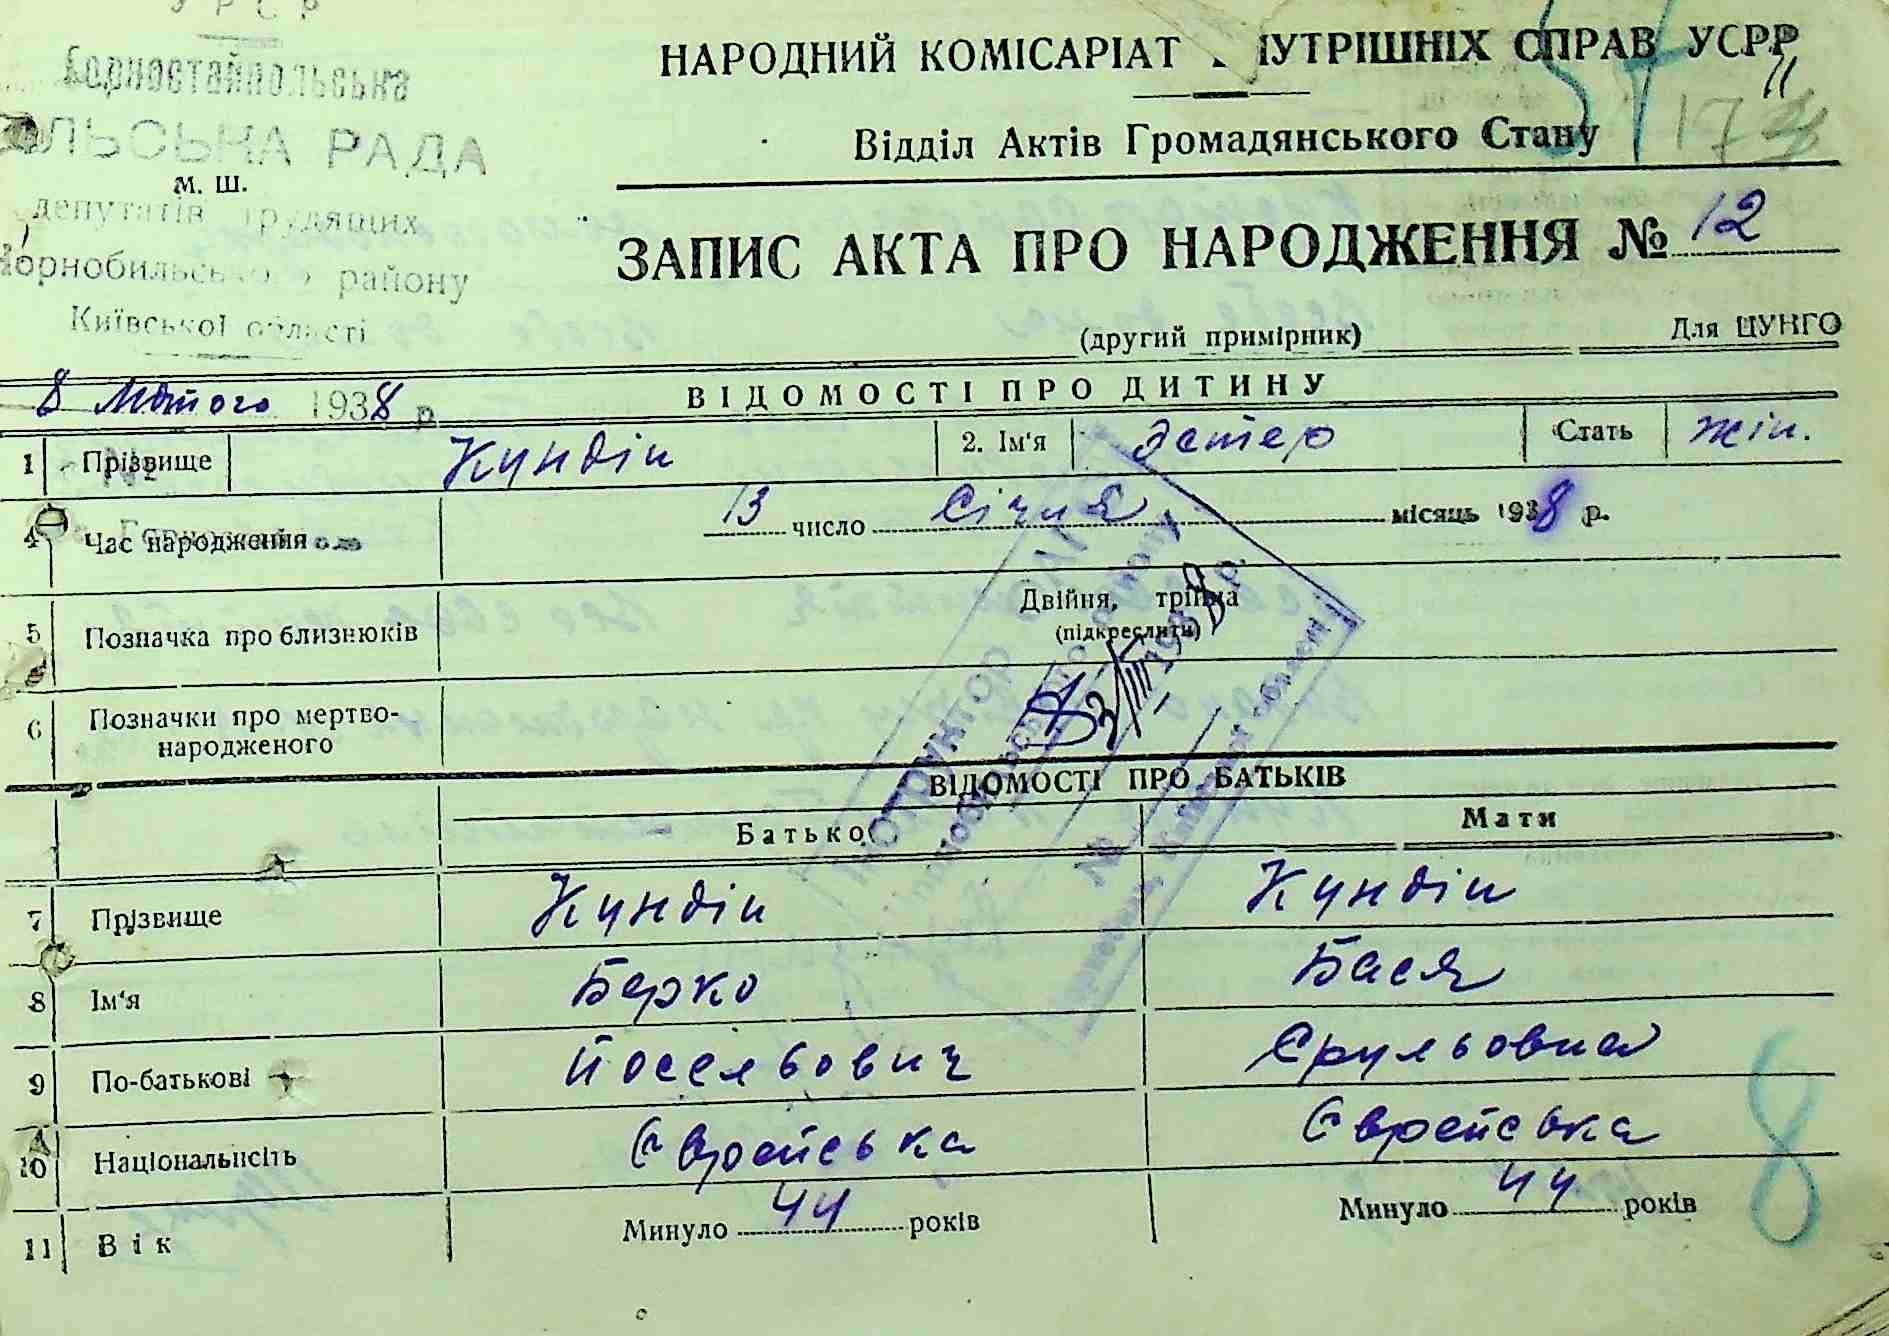 УРСР
Горностайпольська
СІЛЬСЬКА РАДА
м. ш.
депутатів трудящих
Чорнобильського району
Київської області
НАРОДНИЙ КОМІСАРІАТ ВНУТРІШНІХ СПРАВ УСРР
Відділ Актів Громадянського Стану
173
ЗАПИС АКТА ПРО НАРОДЖЕННЯ № 12
(другий примірник)
Для ЦУНГО
8 Лютого 1938 р.
ВІДОМОСТІ ПРО ДИТИНУ
1 Прізвище Кундін 2. Ім'я Естер Стать жін.
4 Час народження 13 число Січня місяць 1938 р.
5 Позначка про близнюків Двійня, трійня
(підкреслити)
6 Позначки про мертво-
народженого
ВІДОМОСТІ ПРО БАТЬКІВ
Батько Мати
7 Прізвище Кундін Кундін
8 Ім'я Берко Бася
9 По-батькові Йосельович Срульовна
10 Національність Єврейська Єврейська
11 Вік Минуло 44 років Минуло 44 років
8